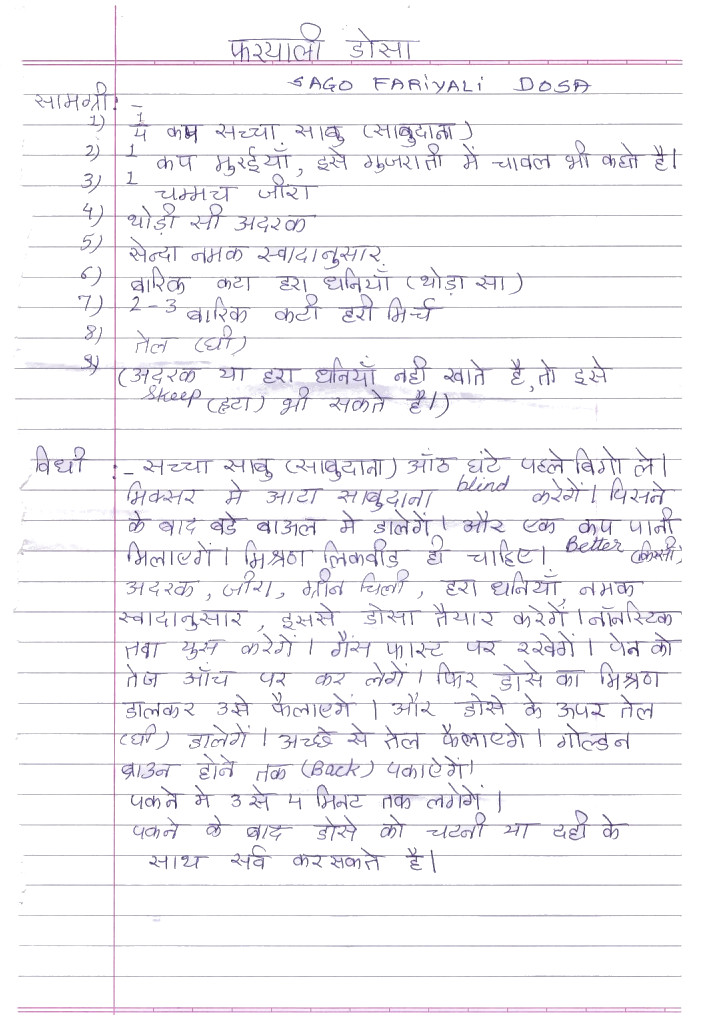 फरयाली डोसा
SAGO FARIYALI DOSA
सामग्री :-
1) 1/4 कप सच्चा साबु (साबुदाना)
2) 1 कप मुरईयाँ, इसे गुजराती में चावल भी कहते है।
3) 1 चम्मच जीरा
4) थोड़ी सी अदरक
5) सेन्दा नमक स्वादानुसार
6) बारिक कटा हरा धनियाँ (थोड़ा सा)
7) 2-3 बारिक कटी हरी मिर्च
8) तेल (घी)
9) (अदरक या हरा धनियाँ नही खाते है, तो इसे
skeep (हटा) भी सकते है।)
विधी :- सच्चा साबु (साबुदाना) आँठ घंटे पहले बिगो ले।
मिक्सर मे आटा साबुदाना blind करेगें। पिसने
के बाद बडे बाऊल मे डालेगें। और एक कप पानी
मिलाएगें। मिश्रण लिकवीड ही चाहिए। Better (किस्सी)
अदरक, जीरा, ग्रीन चिली, हरा धनियाँ, नमक
स्वादानुसार, इससे डोसा तैयार करेगें। नॉनस्टिक
तवा युस करेगें। गैस फास्ट पर रखेगें। पेन को
तेज आँच पर कर लेगें। फिर डोसे का मिश्रण
डालकर उसे फैलाएगें। और डोसे के ऊपर तेल
(घी) डालेगें। अच्छे से तेल फैलाएगे। गोल्डन
ब्राउन होने तक (Back) पकाऐगें।
पकने मे 3 से 4 मिनट तक लगेगें।
पकने के बाद डोसे को चटनी या दही के
साथ सर्व कर सकते है।